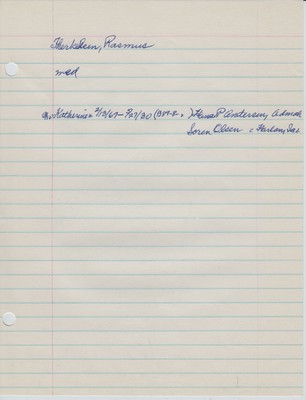 Therkelsen, Rasmus
med
Katherine 2/12/67 - 9/27/30 (Bur-R. ) Hans P Andersen,
Soren Olsen : Harlan,